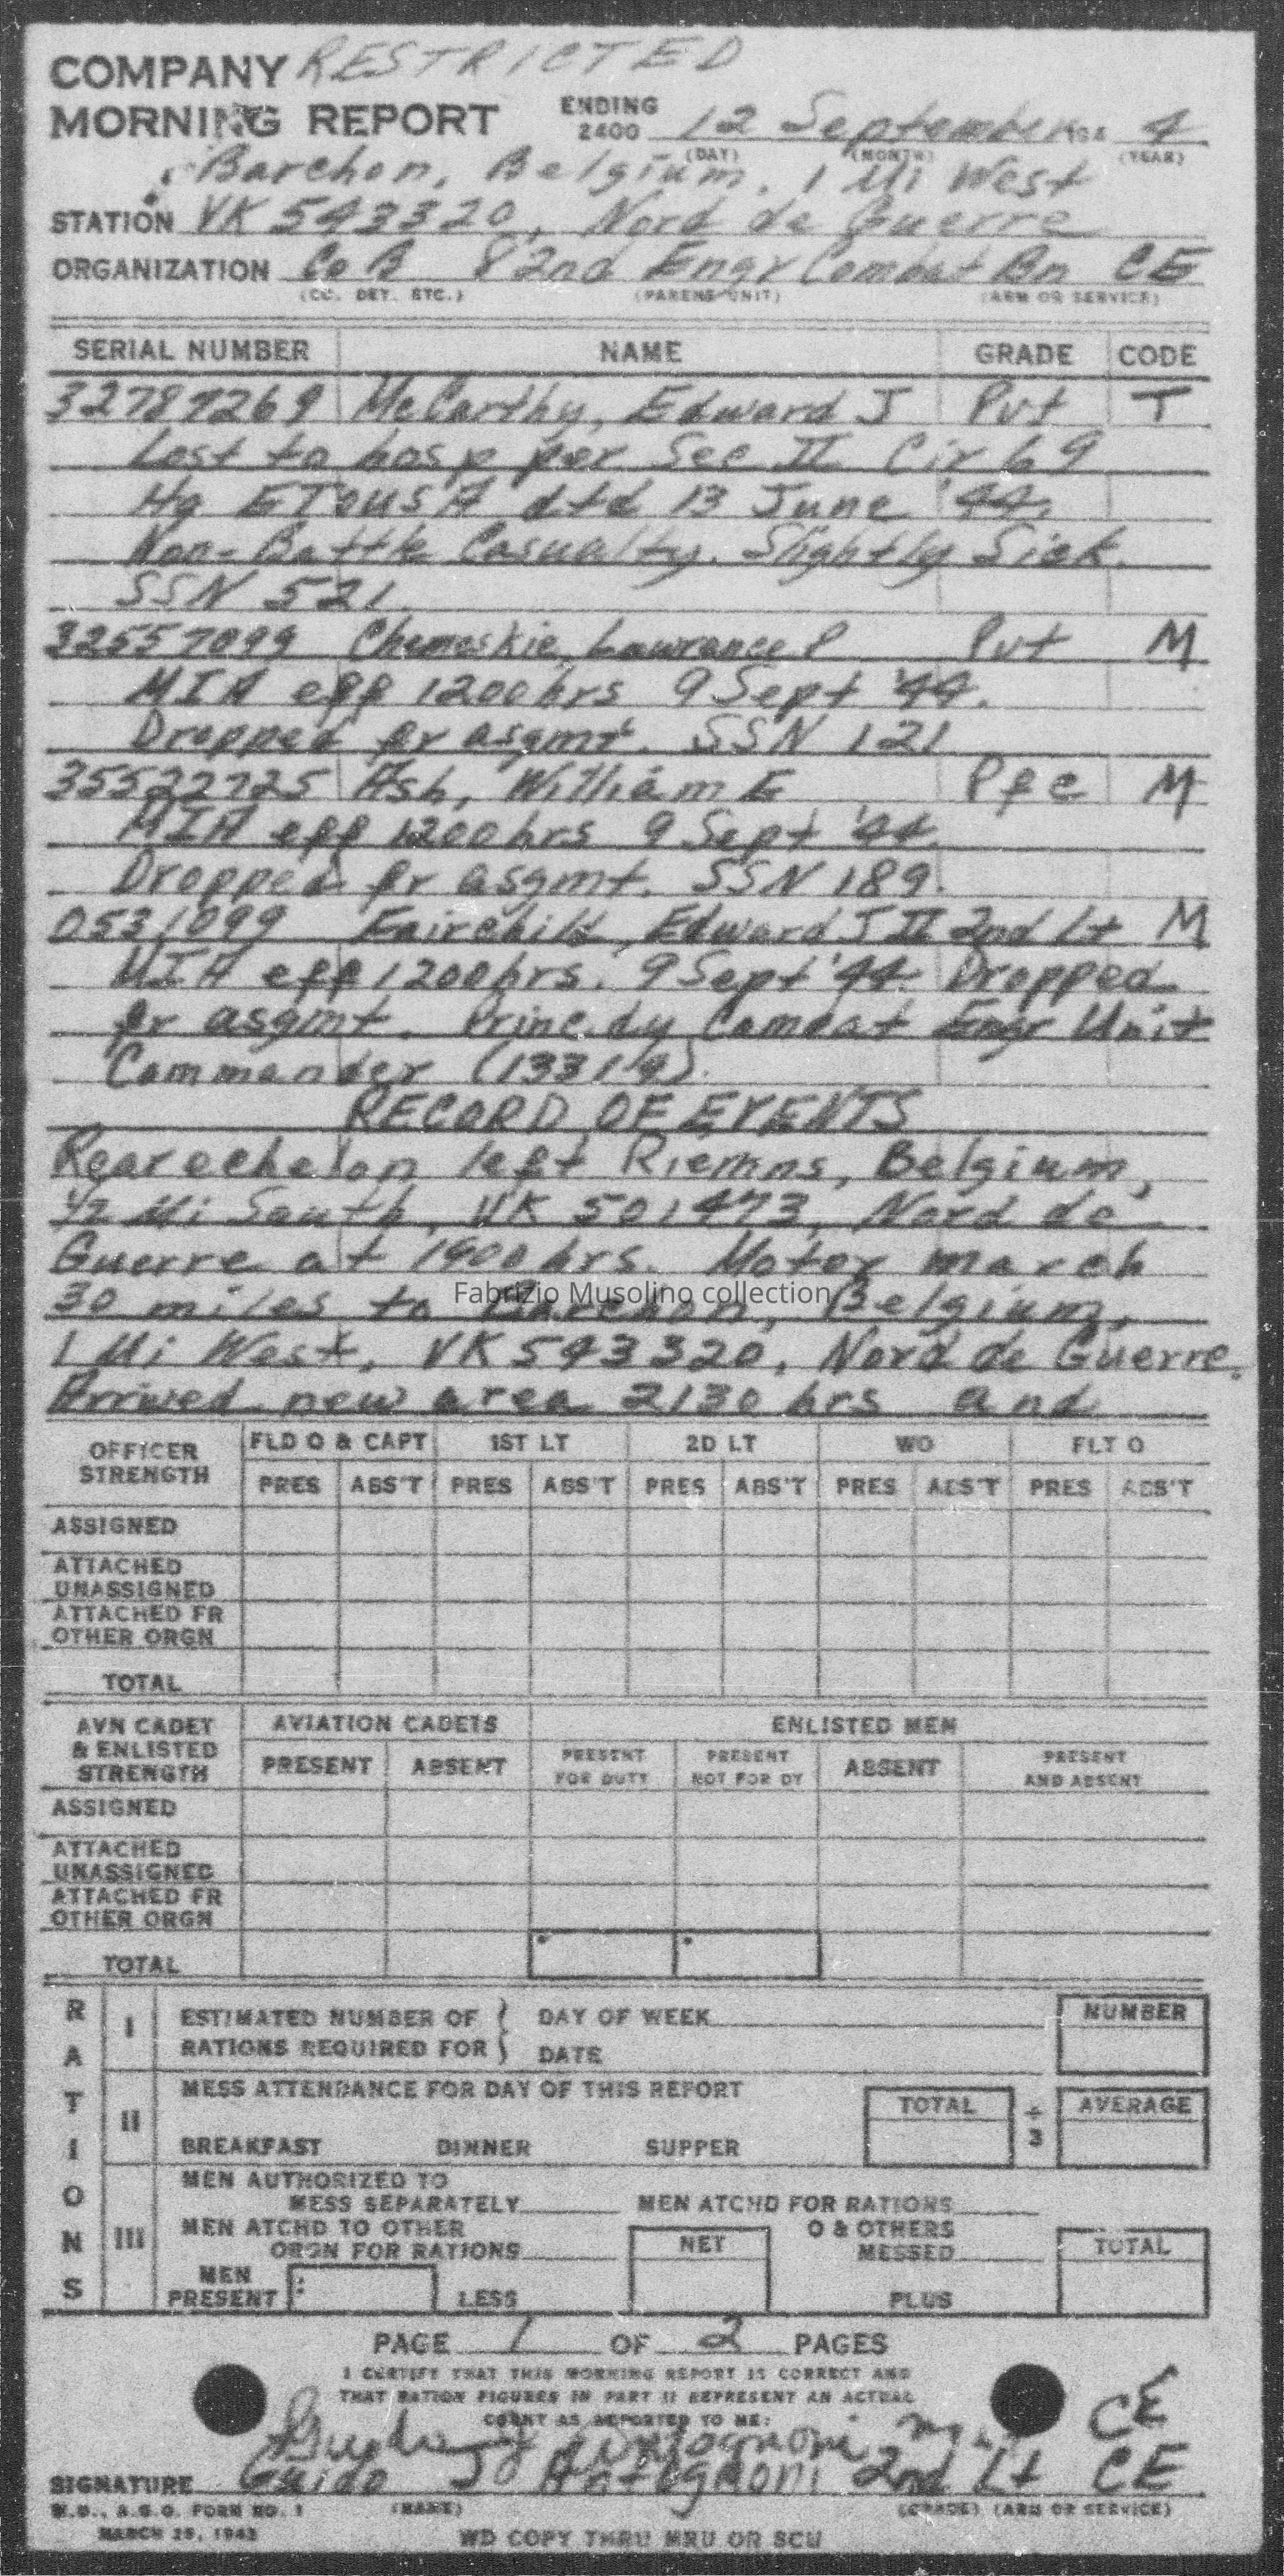 COMPANY RESTRICTED
MORNING REPORT ENDING 2400 12 September 194 4
(DAY) (MONTH) (YEAR)
Barchon, Belgium, 1 Mi West
STATION VK 543320, Nord de Guerre
ORGANIZATION Co B 82nd Engr Combat Bn CE
(CO. DET. ETC.) (PARENT UNIT) (ARM OR SERVICE)
SERIAL NUMBER NAME GRADE CODE
32787269 McCarthy, Edward J Pvt T
Lost to hosp per Sec II Cir 69
Hq ETOUSA dtd 13 June '44.
Non-Battle Casualty. Slightly Sick.
SSN 521.
32557099 Chemeskie, Lawrance P Pvt M
MIA eff 1200hrs 9 Sept '44.
Dropped fr asgmt. SSN 121
35522725 Ash, William E Pfc M
MIA eff 1200hrs 9 Sept '44.
Dropped fr asgmt. SSN 189.
0531099 Fairchild, Edward J II 2nd Lt M
MIA eff 1200hrs. 9 Sept '44. Dropped
fr asgmt. Princ dy Combat Engr Unit
Commander (1331
RECORD OF EVENTS
Rear echelon left Riemns, Belgium,
1/2 Mi South, VK 501473, Nord de
Guerre at 1900 hrs. Motor march
30 miles to Barchon, Belgium,
Fabrizio Musolino collection
1 Mi West, VK 543320, Nord de Guerre.
Arrived new area 2130 hrs and
OFFICER STRENGTH FLD O & CAPT 1ST LT 2D LT WO FLT O
PRES ABS'T PRES ABS'T PRES ABS'T PRES ABS'T PRES ABS'T
ASSIGNED
ATTACHED
UNASSIGNED
ATTACHED FR
OTHER ORGN
TOTAL
AVN CADET & ENLISTED STRENGTH AVIATION CADETS ENLISTED MEN
PRESENT ABSENT PRESENT FOR DUTY PRESENT NOT FOR DY ABSENT PRESENT AND ABSENT
ASSIGNED
ATTACHED
UNASSIGNED
ATTACHED FR
OTHER ORGN
TOTAL
RATIONS
I ESTIMATED NUMBER OF } DAY OF WEEK NUMBER
RATIONS REQUIRED FOR } DATE
II MESS ATTENDANCE FOR DAY OF THIS REPORT TOTAL ÷ 3 AVERAGE
BREAKFAST DINNER SUPPER
III MEN AUTHORIZED TO
MESS SEPARATELY MEN ATCHD FOR RATIONS
MEN ATCHD TO OTHER
ORGN FOR RATIONS NET O & OTHERS MESSED TOTAL
MEN PRESENT : LESS PLUS
PAGE 1 OF 2 PAGES
I CERTIFY THAT THIS MORNING REPORT IS CORRECT AND
THAT RATION FIGURES IN PART II REPRESENT AN ACTUAL
COUNT AS REPORTED TO ME:
Guido J Antognoni CE
SIGNATURE Guido J Antognoni 2nd Lt CE
W.D., A.G.O. FORM NO. 1 (NAME) (GRADE) (ARM OR SERVICE)
MARCH 25, 1943
WD COPY THRU MRU OR SCU